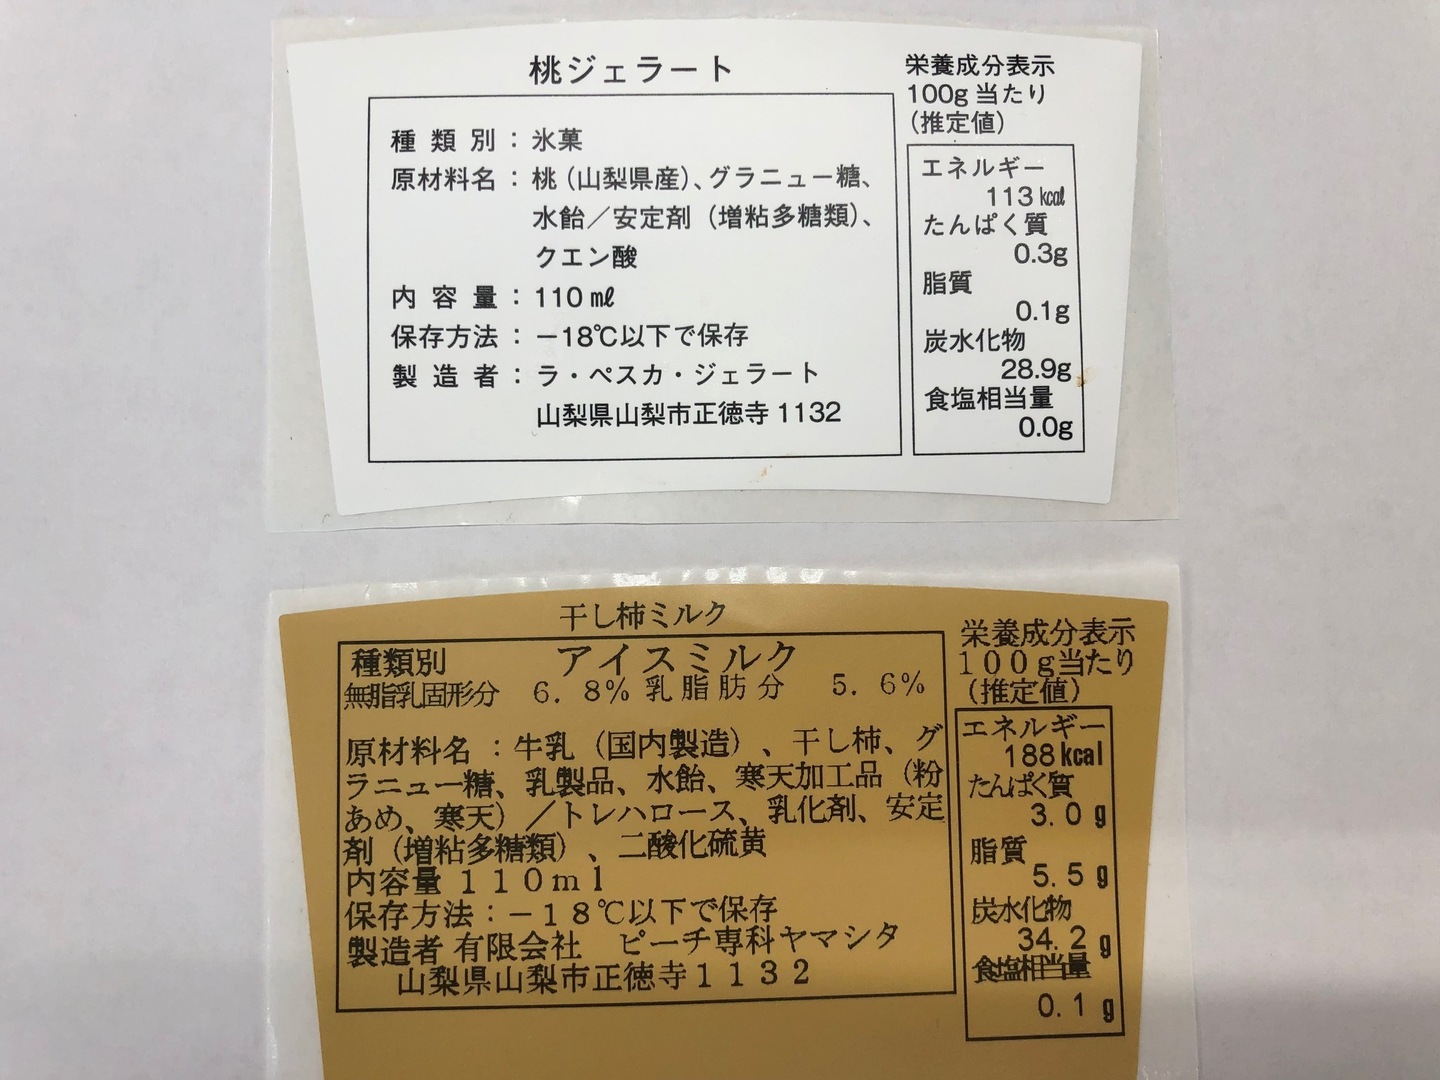 桃ジェラート
種類別：氷菓
原材料名：桃（山梨県産）、グラニュー糖、
水飴／安定剤（増粘多糖類）、
クエン酸
内容量：110㎖
保存方法：－18℃以下で保存
製造者：ラ・ペスカ・ジェラート
山梨県山梨市正徳寺1132
栄養成分表示
100g当たり
（推定値）
エネルギー
113㎉
たんぱく質
0.3g
脂質
0.1g
炭水化物
28.9g
食塩相当量
0.0g
干し柿ミルク
種類別　アイスミルク
無脂乳固形分　6.8%　乳脂肪分　5.6%
原材料名：牛乳（国内製造）、干し柿、グ
ラニュー糖、乳製品、水飴、寒天加工品（粉
あめ、寒天）／トレハロース、乳化剤、安定
剤（増粘多糖類）、二酸化硫黄
内容量１１０ｍｌ
保存方法：－１８℃以下で保存
製造者 有限会社　ピーチ専科ヤマシタ
山梨県山梨市正徳寺１１３２
栄養成分表示
１００ｇ当たり
（推定値）
エネルギー
188kcal
たんぱく質
3.0g
脂質
5.5g
炭水化物
34.2g
食塩相当量
0.1g